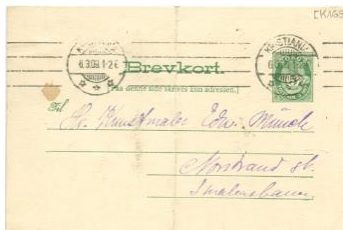 KRISTIANIA
6.3.09.1-2 E
KRISTIANIA
Brevkort.
[Paa denne side skrives kun adressen.]
Til
Hr. Kunstmaler Edv. Munch
Nordstrand st.
Smaalensbanen